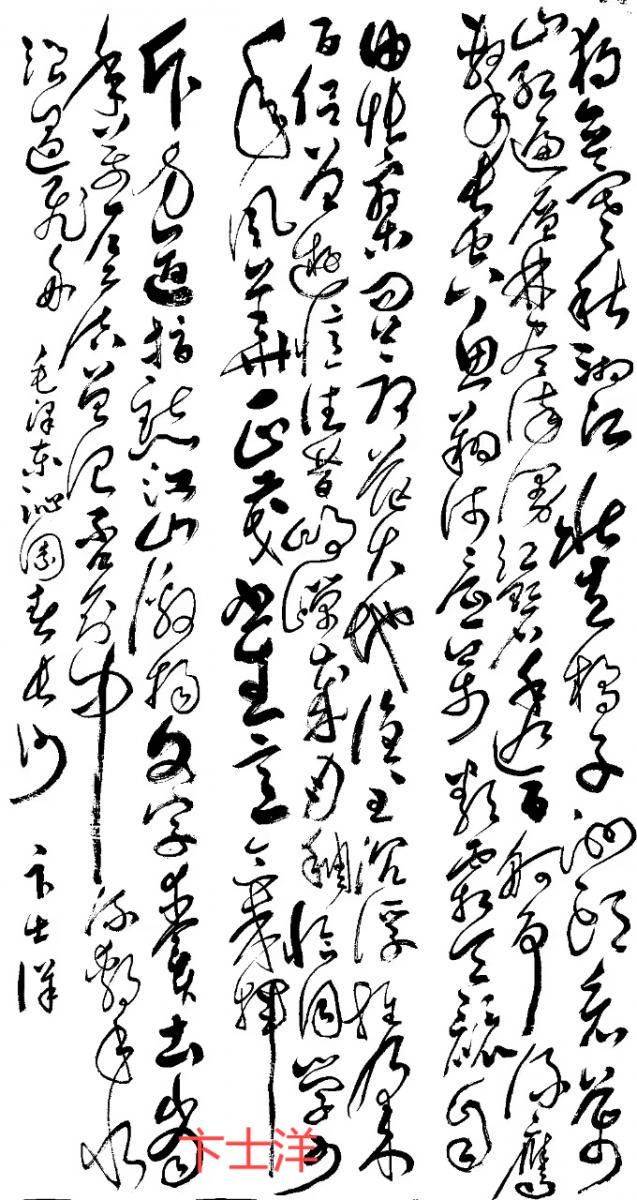 独立寒秋湘江北去橘子洲头看万
山红遍层林尽染漫江碧透百舸争流鹰
击长空鱼翔浅底万类霜天竞自
由怅寥廓问苍茫大地谁主沉浮携来
百侣曾游忆往昔峥嵘岁月稠恰同学少
年风华正茂书生意气挥
斥方遒指点江山激扬文字粪土当
年万户侯曾记否到中流击水
浪遏飞舟 毛泽东沁园春长沙 卞士洋
卞士洋